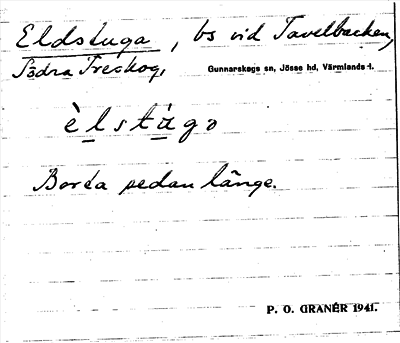 Eldstuga, bs vid Tavelbacken,
Södra Treskog, Gunnarskogs sn, Jösse hd, Värmlands l.
è l s t ù g o
Borta sedan länge.
P. O. GRANÉR 1941.